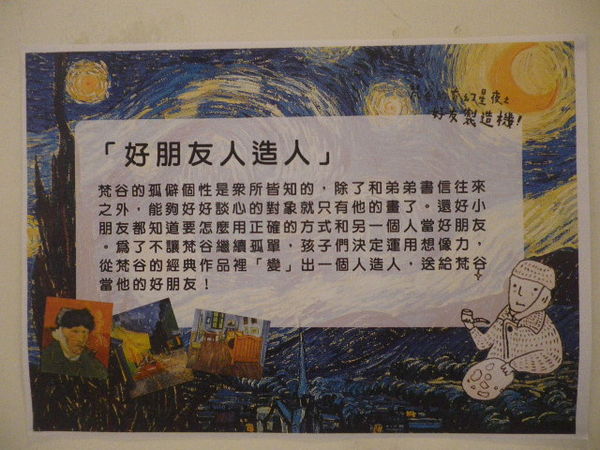 幻星夜之
好友製造機!
「好朋友人造人」
梵谷的孤僻個性是衆所皆知的,除了和弟弟書信往來
之外,能夠好好談心的對象就只有他的畫了。還好小
朋友都知道要怎麼用正確的方式和另一個人當好朋友
。爲了不讓梵谷繼續孤單,孩子們決定運用想像力,
從梵谷的經典作品裡「變」出一個人造人,送給梵谷
當他的好朋友!